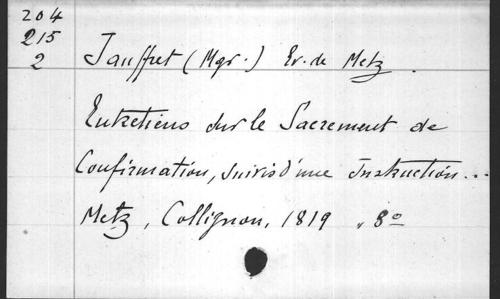 204
215
2
Jauffret (Mgr.) Ev. de Metz.
Entretiens sur le Sacrement de
Confirmation, suivis d'une Instruction...
Metz, Collignon, 1819, 8º